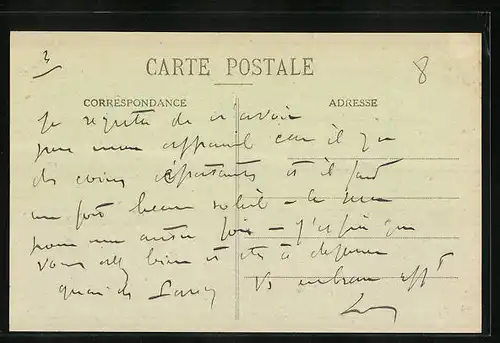 3
8
CARTE POSTALE
CORRESPONDANCE
ADRESSE
Je regrette de n'avoir
pas mon appareil car il y a
des coins épatants et il fait
un fort beau soleil – ce sera
pour une autre fois – J'espère que
vous allez bien et
Vs embrasse aff^t